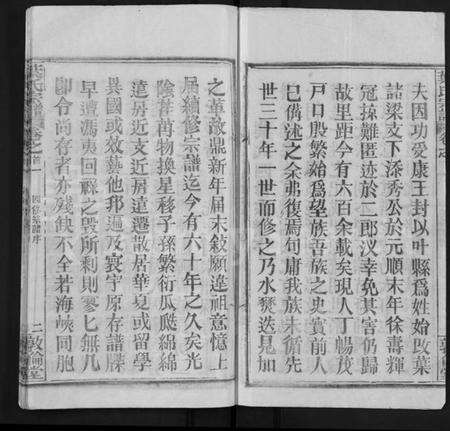 夫因功爱康王封以叶縣爲姓始改葉
諸梁文下添秀公於元順末年徐壽輝
冠掠難匿迹於二郎汊幸免其害仍歸
故里距今六百余載矣現人丁暢茂
戸口殷繁始爲望族吾族之史實前人
已偹述之余弗復焉句庸我族未循先
世三十年一世而修之乃水焚迭見加
之董敵鼎新年届末敍願違祖意憶上
届續修宗譜迄今有六十年之久矣光
陰荏苒物換星移子孫繁衍瓜瓞綿綿
遠房近支近居遠遷散居華夏或留學
異國或效藝他邦遍及寰宇原存譜牒
早遭馮夷回禄之毀所剩則寥匕無几
卽令尚存者亦残缺不全若海峽同胞
葉氏宗譜
卷之首一
二敦倫堂